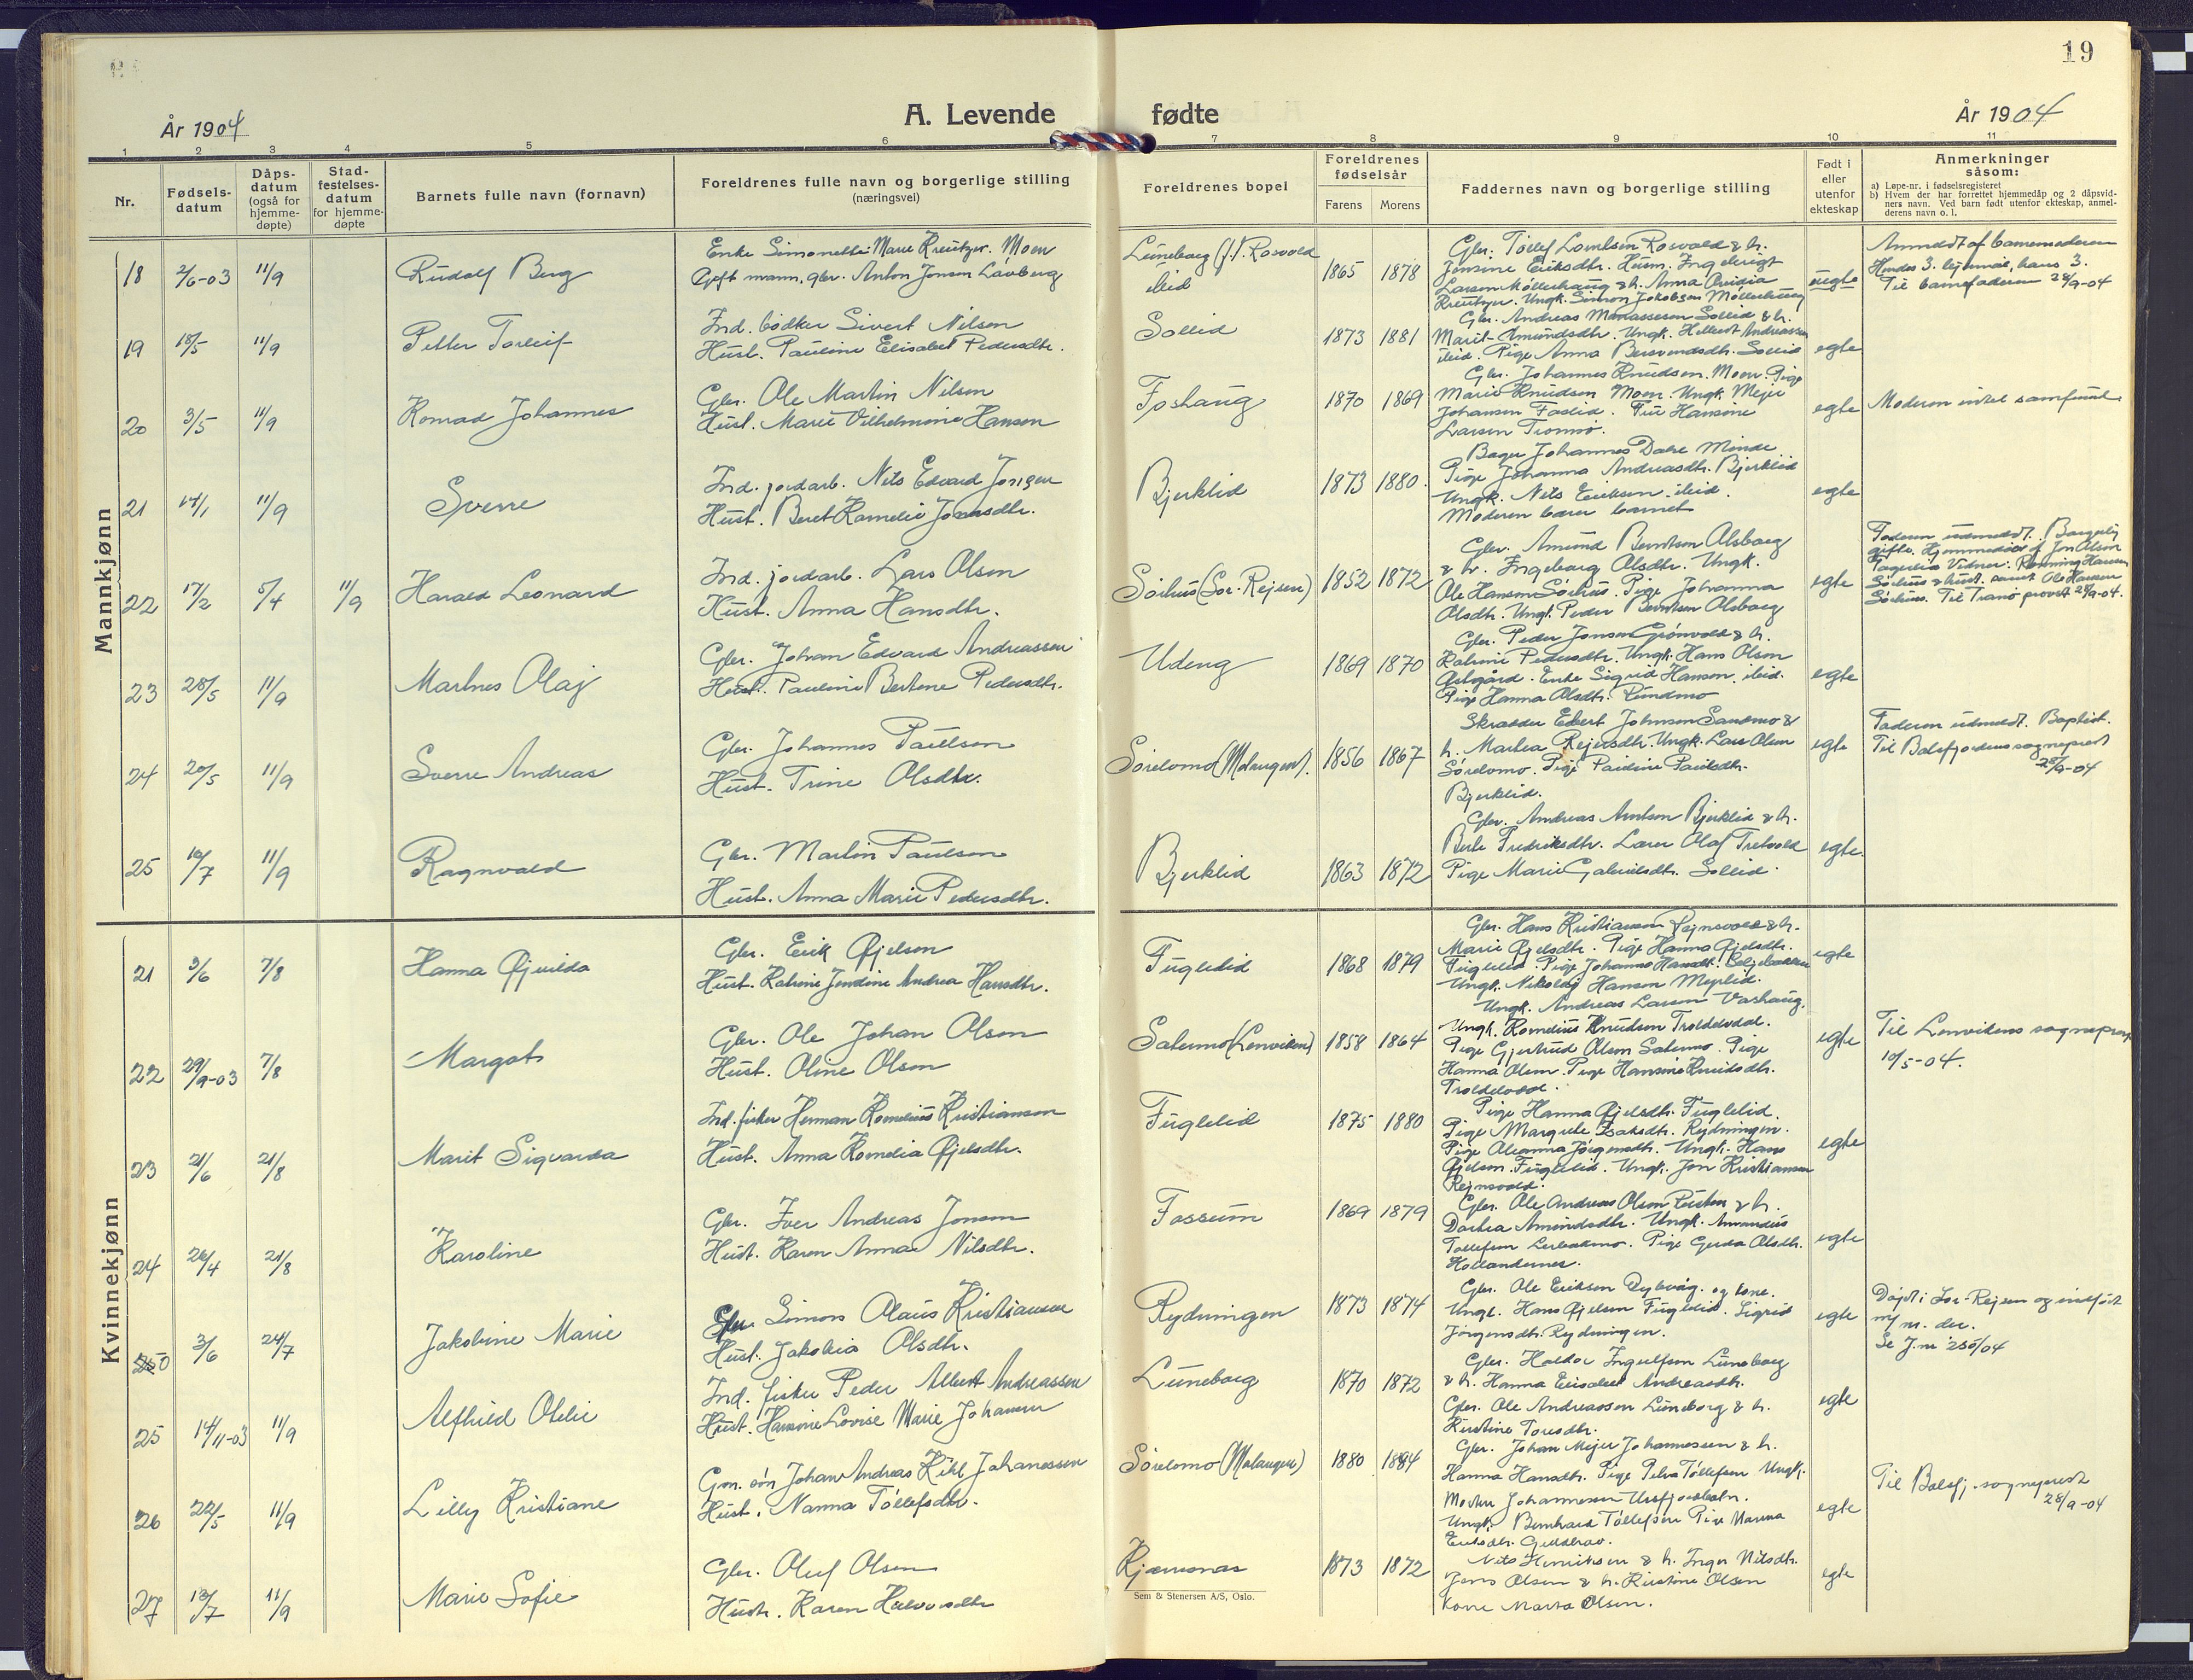 19
År 1904
A. Levende
fødte
År 1904
1 2 3 4 5 6 7 8 9 10 11
Nr.
Fødsels-
datum
Dåps-
datum
(også for
hjemme-
døpte)
Stad-
festelses-
datum
for hjemme-
døpte
Barnets fulle navn (fornavn)
Foreldrenes fulle navn og borgerlige stilling
(næringsvei)
Foreldrenes bopel
Foreldrenes
fødselsår
Farens Morens
Faddernes navn og borgerlige stilling
Født i
eller
utenfor
ekteskap
Anmerkninger
såsom:
a) Løpe-nr. i fødselsregisteret
b) Hvem der har forrettet hjemmedåp og 2 dåpsvid-
ners navn. Ved barn født utenfor ekteskap, anmel-
derens navn o. l.
Mannkjønn
18 2/6-03 11/9 Rudolf Berg
Enke Simonette Marie Kreutzer. Moen
Gift mann, gbr. Anton Jensen Lavberg
1865 1878
Gbr. Tollef Rosvold & h.
Jensine Eriksdtr. Husm. Ingebrigt
Larsen Møllerhaug & h. Anna
Kreutzer. Ungk. Simon Jakobsen Møllerhaug
uegte
Anmeldt af barnemoderen
Hendes 3. lejermål, hans 3.
Til barnefaderen 28/9-04
19 18/5 11/9 Petter Torleif
Ind. bødker Sivert Nilsen
Hust. Pauline Elisabet Pedersdtr.
Sollid
1873 1881
Gbr. Andreas Manassesen Sollid & h.
Marit Amundsdtr. Ungk. Andreassen
ibid. Pige Anna Sollid
egte
20 3/5 11/9 Konrad Johannes
Gbr. Ole Martin Nilsen
Hust. Marie Vilhelmine Hansen
Foshaug
1870 1869
Gbr. Johannes Knudsen. Moen. Pige
Marie Knudsen Moen. Ungk. Mejer
Johansen Foslid. Fru Hansine
Larsen Tromsø.
egte
Moderen intet samfund
21 14/1 11/9 Sverre
Ind. jordarb. Nils Edvard Jensen
Hust. Beret Kornelie
Bjerklid
1873 1880.
Bager Johannes Dahl Minde
Pige Johanna Andreasdtr. Bjerklid
Ungk. Nils Eriksen. ibid.
Moderen bærer barnet
egte
22 17/2 5/4 11/9 Harald Leonard
Ind. jordarb. Lars Olsen
Hust. Anna Hansdtr.
Sørhus (Sør-Rejsen)
1852 1872
Gbr. Amund Berntsen Alsborg
& h. Ingeborg Olsdtr. Ungk.
Ole Hansen Sørhus. Pige Johanna
Olsdtr. Ungk. Peder Berntsen Alsborg
egte
Faderen udmeldt. Borgerlig
gifte. Hjemmedøbt af Jon Olsen
Fagerlia Vidner: Henning Hansen
Sørhus & hust. samt Ole Hansen
Sørhus. Til Tranø provst 28/9-04.
23 28/5 11/9 Martnes Olaj
Gbr. Johan Edvard Andreassen
Hust. Pauline Bertine Pedersdtr.
Udeng
1869 1870
Gbr. Peder Jensen Grønvold & h.
Katrine Pedersdtr. Ungk. Hans Olsen
. Enke Sigrid Hansen, ibid.
Pige Hanna Olsdtr. Rundmo
egte
24 20/5 11/9 Sverre Andreas
Gbr. Johannes Paulsen
Hust. Trine Olsdtr.
Sørelvmo (Malangen).
1856 1867
Skrædder Edvert Johnsen Sandmo &
h. Martea Rejersdtr. Ungk. Lars Olsen
Sørelvmo. Pige Pauline Paulsdtr.
Bjerklid.
egte
Faderen udmeldt. Baptist.
Til Balsfjordens sogneprest
28/9-04
25 10/7 11/9 Ragnvald
Gbr. Martin Paulsen
Hust. Anna Marie Pedersdtr.
Bjerklid
1863 1872
Gbr. Andreas Arntsen Bjerklid & h.
Berte Fredriksdtr. Lærer Olaf Tretvold
Pige Marie Gabrielsdtr. Sollid.
egte.
Kvinnekjønn
21 3/6 7/8 Hanna Gjurilda
Gbr. Erik Gjelsen
Hust. Katrine Jendine Andrea Hansdtr.
Fuglelid
1868 1879
Gbr. Hans Kristiansen Rejnsvold & h.
Marie Gjelsdtr. Pige Hanna Gjelsdtr.
Fuglelid. Pige Johanna Hansdtr. Seljebakken
Ungk. Nikolaj Hansen Moylid.
egte
22 29/9-03 7/8 Margot
Gbr. Ole Johan Olsen
Hust. Oline Olsen
Salermo (Lenviken)
1858 1864
Ungk. Andreas Larsen Vashaug.
Ungk. Kornelius Knudsen Troldelvdal.
Pige Gjertrud Olsen Salermo. Pige
Hanna Olsen. Pige Hansine Knudsdtr.
egte
Til Lenvikens sogneprest
10/5-04.
23 21/6 21/8 Marit Sigvarda
Ind. fisker Herman Kornelius Kristiansen
Hust. Anna Kornelia Gjelsdtr.
Fuglelid
1875 1880
Pige Hanna Gjelsdtr. Fuglelid.
Pige Margrete Isaksdtr. Rydningen.
Pige Oleanna Jørgensdtr. Ungk. Hans
Gjelsen. Fuglelid. Ungk. Jon Kristiansen
Rejnsvold.
egte
24 26/4 21/8 Karoline
Gbr. Iver Andreas Jensen
Hust. Karen Anna Nilsdtr.
Fossum
1869 1879
Gbr. Ole Andreas Olsen & h.
Dortea Amundsdtr. Ungk. Amandus
Tollefsen. Pige Gerda Olsdtr.
Hollandernes.
egte
250 3/6 24/7 Jakobine Marie
Gbr. Simon Olaus Kristiansen
Hust. Jakobia Olsdtr.
Rydningen
1873 1874
Gbr. Ole Eriksen. og kone.
Ungk. Hans Gjelsen Fuglelid. Sigrid
Jørgensdtr. Rydningen.
egte
Døpt i Sør-Rejsen og indført
m/ nr. der.
Se J.nr 250/04
25 14/11-03 11/9 Alfhild Otelie
Ind. fisker Peder Albert Andreassen
Hust. Hansine Lovise Marie Johansen
Luneborg
1870 1872
Gbr. Haldor Ingulfsen Luneborg
& h. Hanna Elisabet Andreasdtr.
Gbr. Ole Andreassen Luneborg & h.
Kirstine Toresdtr.
egte
26 22/5 11/9 Lilly Kristiane
Gm. søn Johan Andreas Kihl Johanessen
Hust. Nanna Tollefsdtr.
Sørelvmo (Malangen)
1880 1884
Gbr. Johan Mejer Johannessen & h.
Hanna Hansdtr. Pige Petra Tollefsen Ungk.
Johannesen
Ungk. Bernhard Tollefsen Pige Marina
egte
Til Balsfj. sogneprest
28/9-04
27 13/7 11/9 Marie Sofie
Gbr. Oluf Olsen
Hustr. Karen
Kjærnsnæs
1873 1872
Nils Henriksen & h. Inger Nilsdtr.
Jens Olsen & h. Kirstine Olsen
Kone Marta Olsen.
egte
Sem & Stenersen A/S, Oslo.